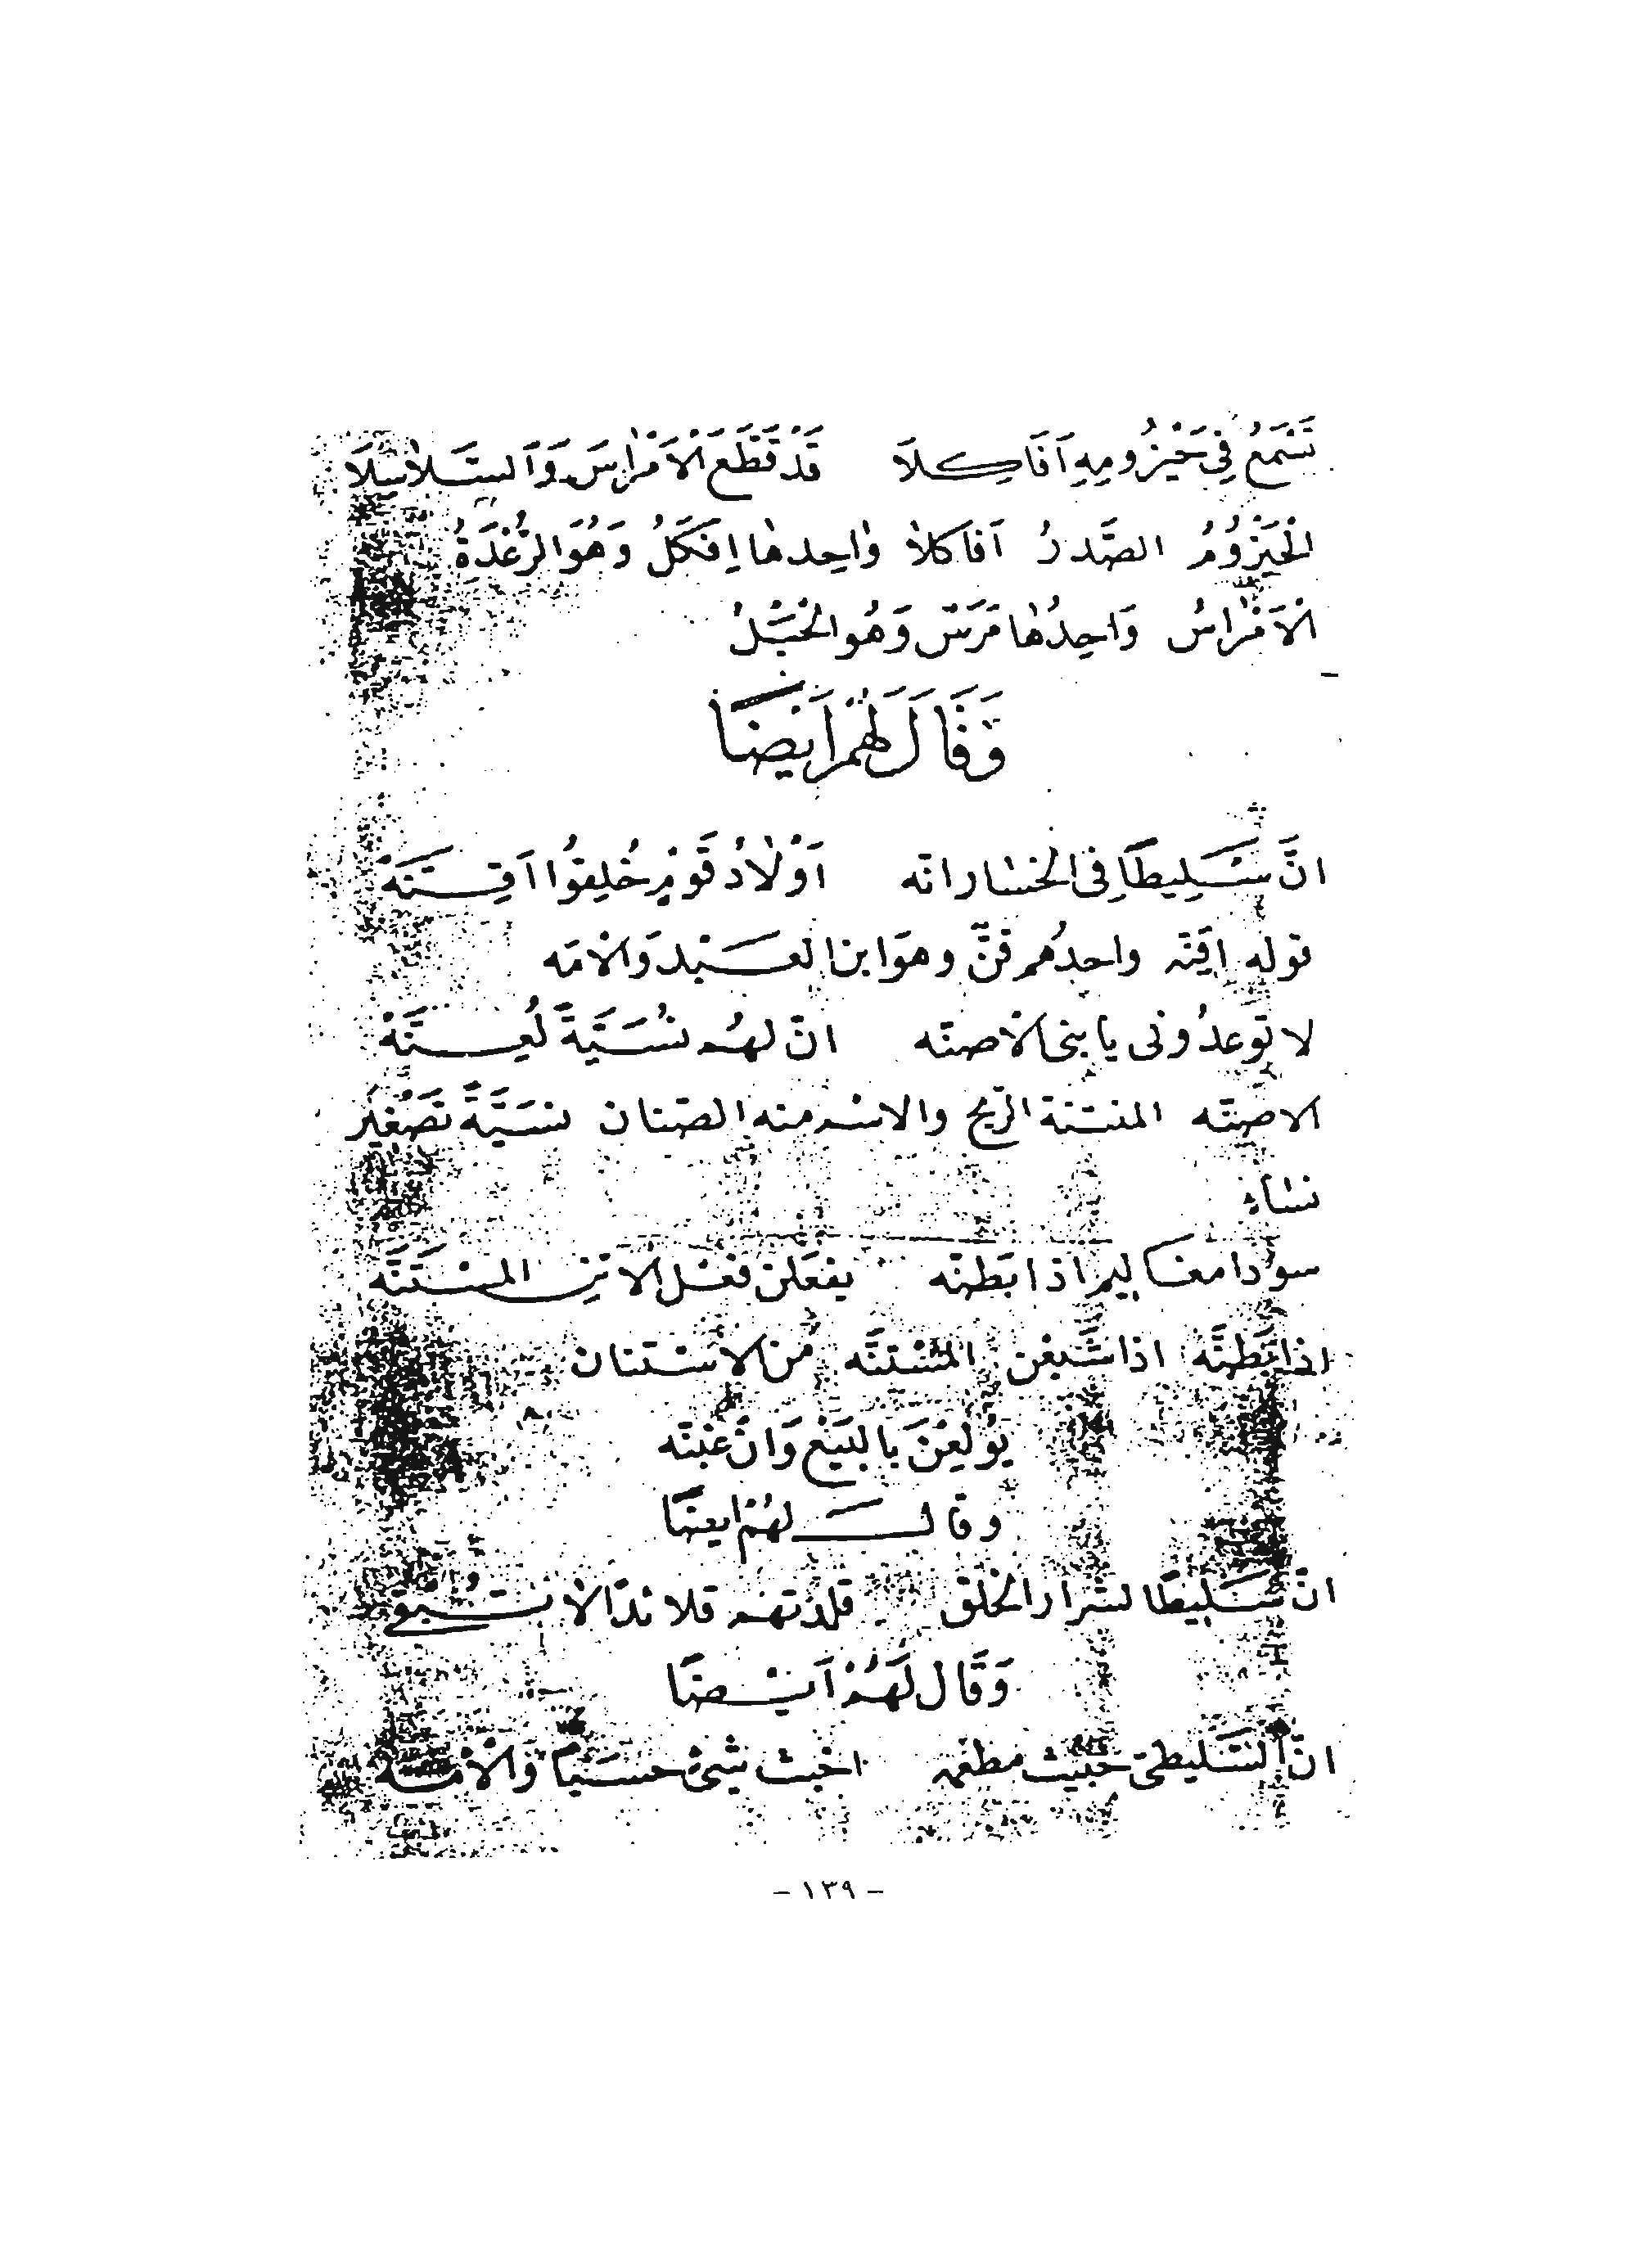 تَسْمَعُ فِي حَيْزُومِهِ اَفَاكِلَا قَدْ قَطَعَ الْاَمْرَاسَ وَاَلسَّلاسِلَا
الْحَيْزُومُ الصَّدرُ اَفاكلا وَاحِدهَا اِفكَلُ وَهُوَ الرَّعْدَةُ
الْاَمْرَاسُ وَاحِدُهَا مَرَسٌ وَهُو الْحَبْلُ
وَقَالَ لَهُمْ اَيْضًا
انَّ سَلِيطًا فِى الخسَاراته اَوْلَادُ قَوْمٍ خُلِقُوا اَقِنَّهْ
قوله اقِنَّه واحدُهم قنٌّ وهوَ ابن العَبْد وَالْامَه
لا توعدُونى يا بنى الْاصنّه انّ لهُم نُسَيَّةً لُعِنَّهْ
الاصنّه المنتنة الرّيح والاسْم منه الصّنان نسَيَّةً تَصْغيَر
نسَاءٍ
سودا مغاليم اذا بَطِنّه يفعَلن فعْل الاتنِ المسْتَنَّه
اذا بَطِنَّه اذا شَبعْن المُسْتنَّه مْن الاسْتنان
يُولَعِنَ بالبَيْع وَانْ غُبنّه
وقال لهُمْ ايضًا
انَّ سَلِيطًا لشرار الخلق قلّدتهُم قلائدّا لا تُبْقى
وَقَال لَهُمْ اَيْضًا
انّ السَّليطىّ خبيث مطعمه اخْبث شَىْءٍ حسَبًا وَالْأمُه
- ١٣٩ -